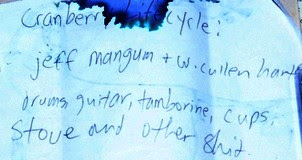 Cranberry Lifecycle:
jeff mangum + w. cullen hart
drums, guitar, tamborine, cups,
Stove and other Shit.